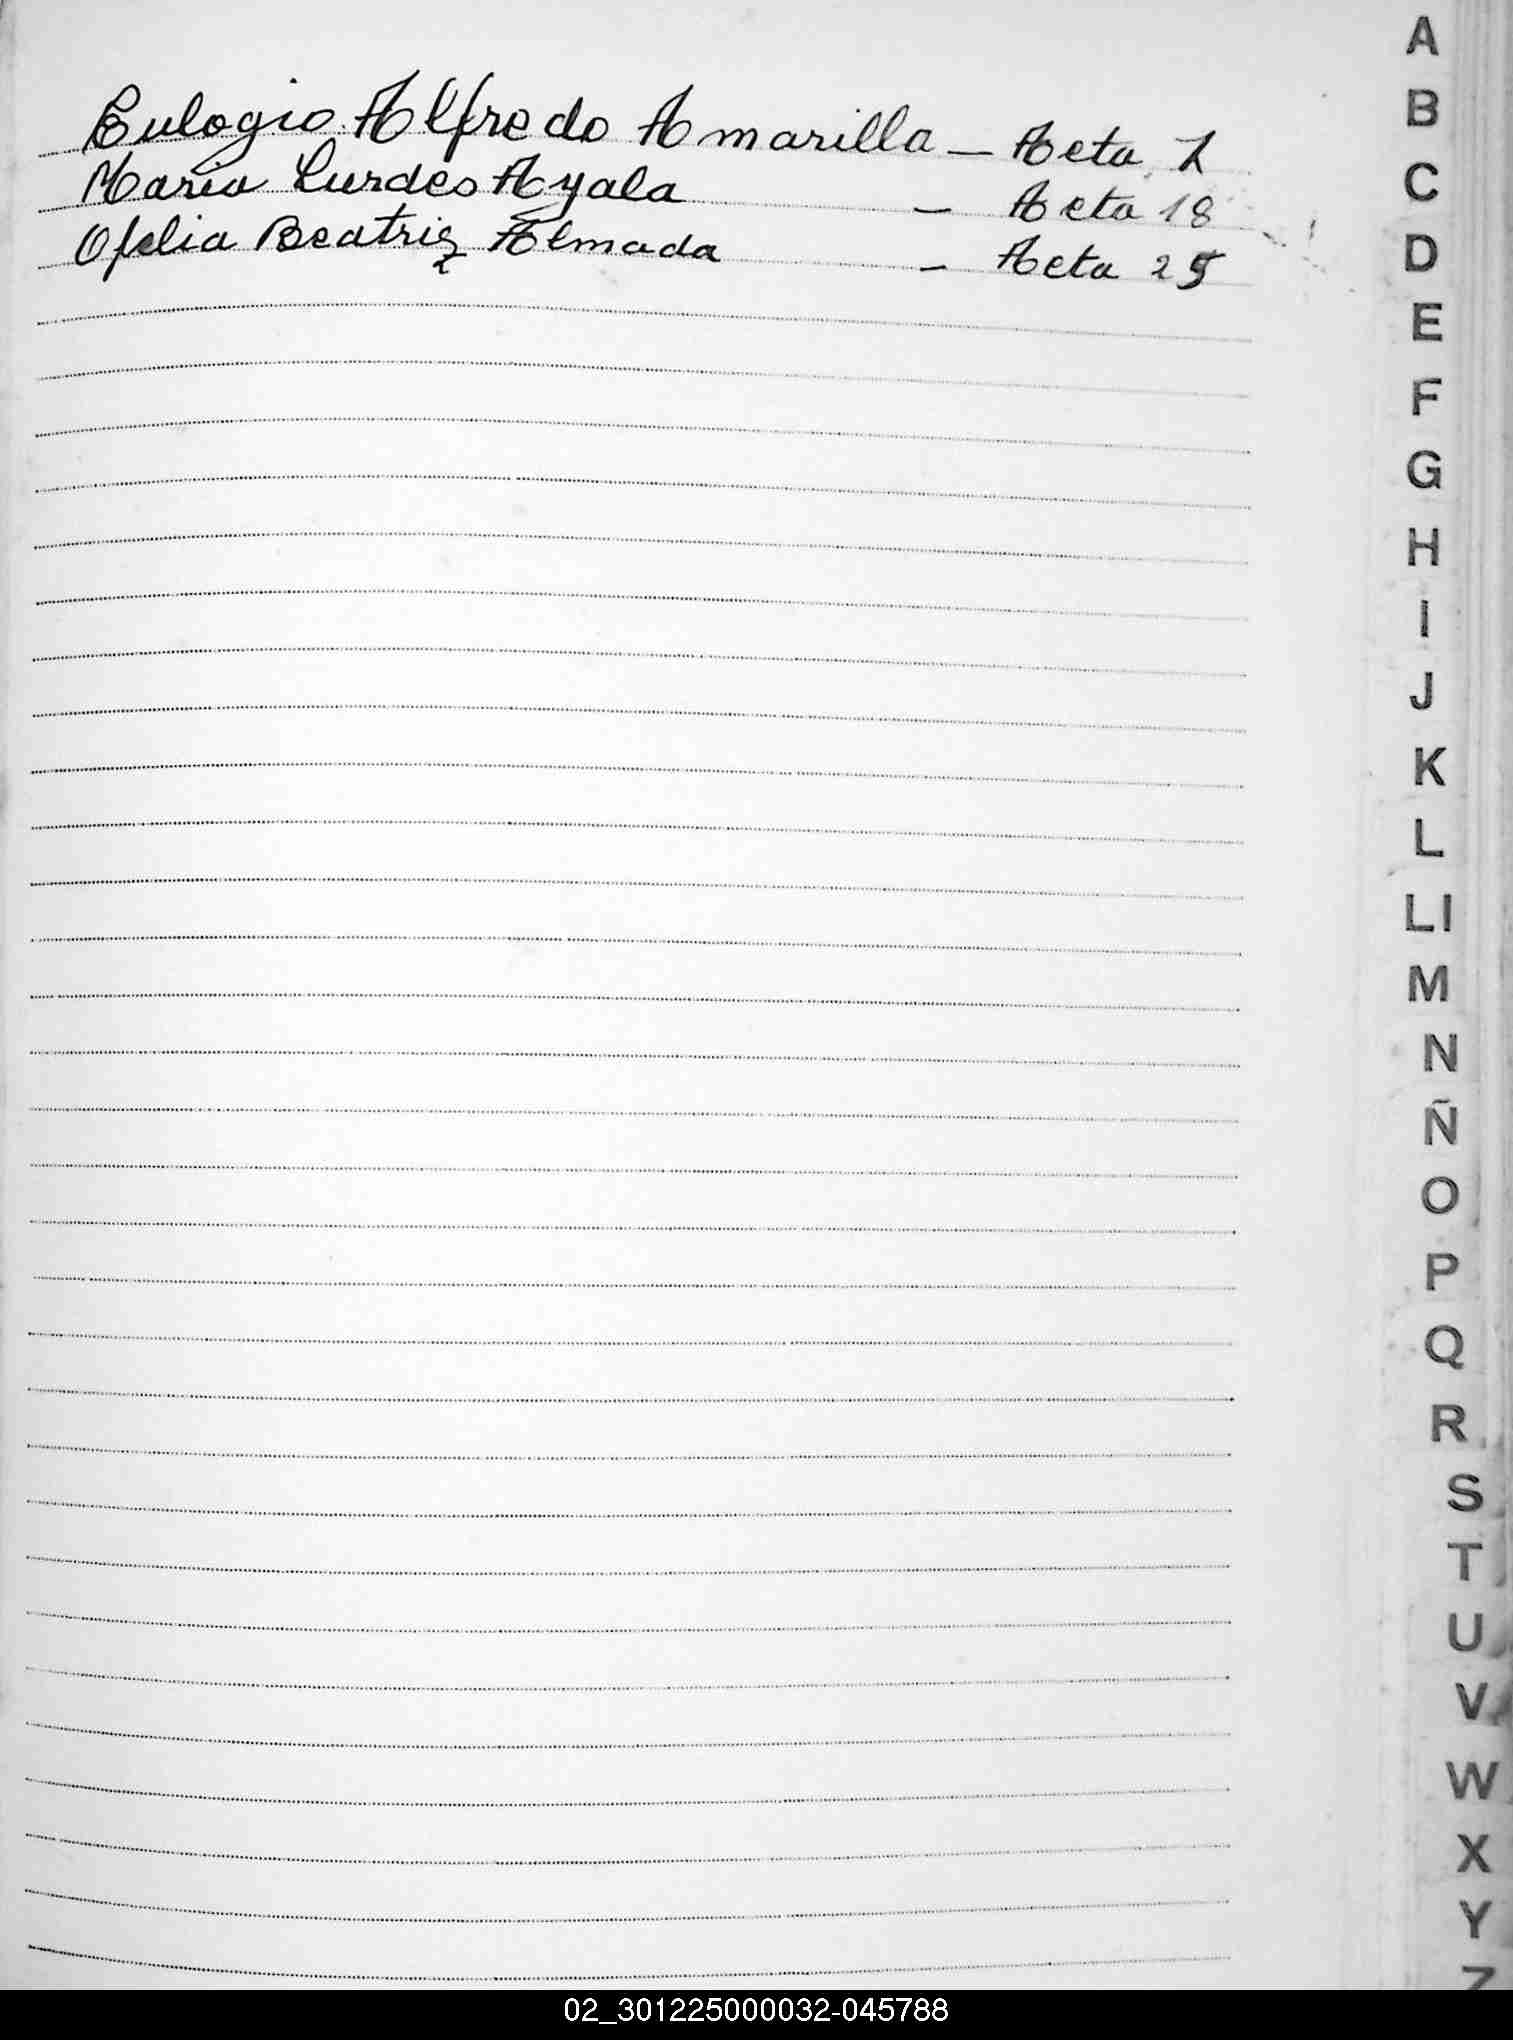 Eulogio Alfredo Amarilla — Acta 7
Maria Lurdes Ayala — Acta 18
Ofelia Beatriz Almada — Acta 25
A
B
C
D
E
F
G
H
I
J
K
L
Ll
M
N
Ñ
O
P
Q
R
S
T
U
V
W
X
Y
Z
02_301225000032-045788